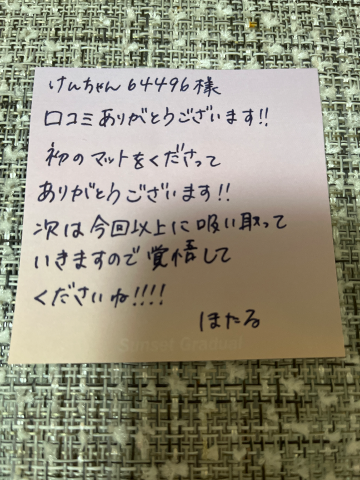 けんちゃん64496様
口コミありがとうございます!!
初のマットをくださって
ありがとうございます!!
次は今回以上に吸い取って
いきますので覚悟して
くださいね!!!!
ほたる
Sunset Gradual